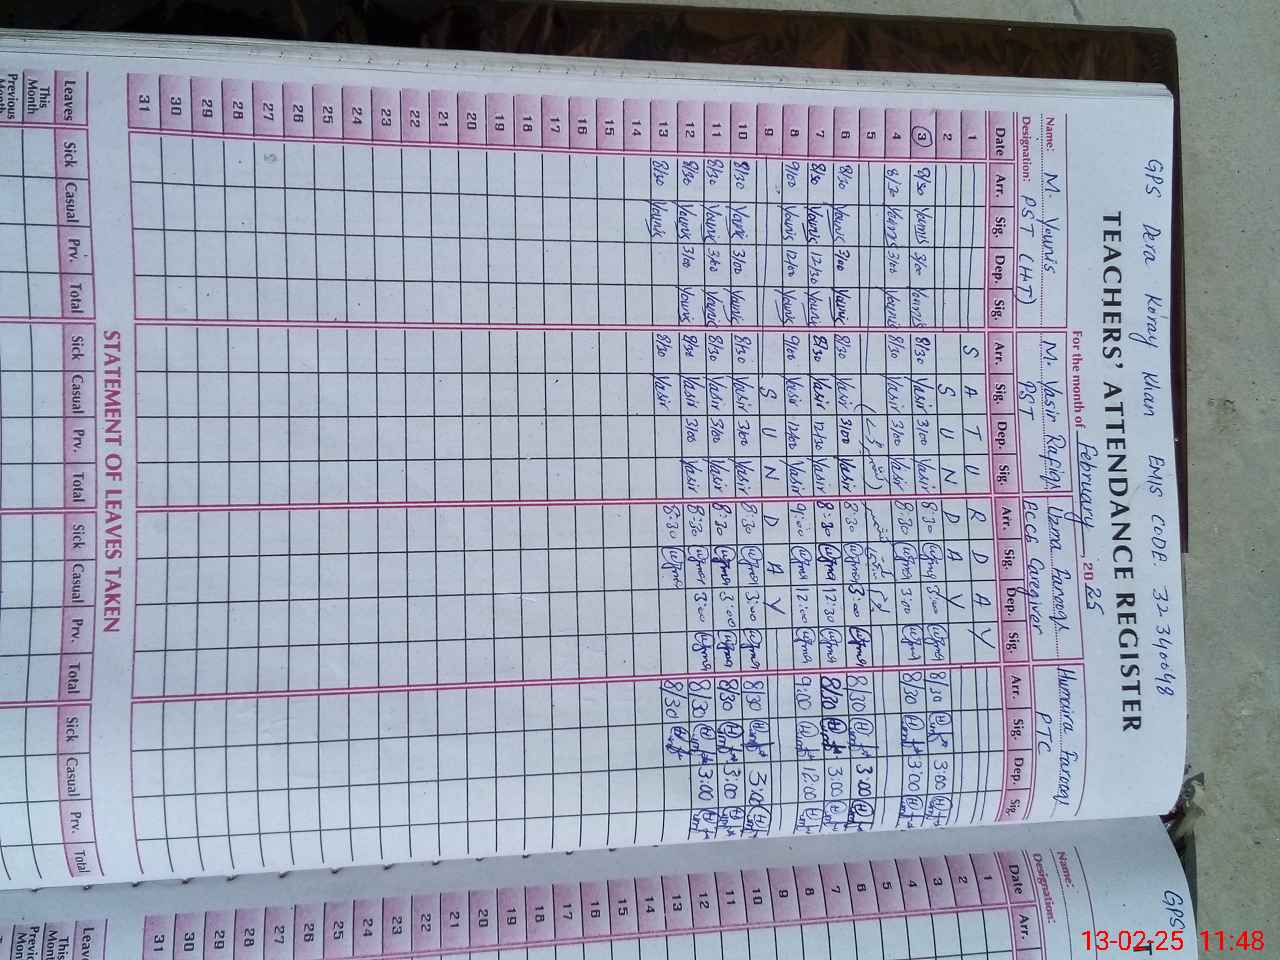 GPS Dera Koray Khan EMIS CODE. 32340048
TEACHERS' ATTENDANCE REGISTER
For the month of February, 2025
Name: M. Younis M. Yasir Rafiq Uzma Farooq Humaira Farooq
Designation: PST (H.T) PST ECCE Caregiver PTC
Date Arr. Sig. Dep. Sig. Arr. Sig. Dep. Sig. Arr. Sig. Dep. Sig. Arr. Sig. Dep. Sig.
1 S A T U R D A Y
2 S U N D A Y
3 8/30 Younis 3/00 Younis 8/30 Yasir 3/00 Yasir 8:30 Uzma 3:00 Uzma 8/30 3:00
4 8/30 Younis 3/00 Younis 8/30 Yasir 3/00 Yasir 8:30 Uzma 3:00 Uzma 8/30 3:00
5
6 8/30 Younis 3/00 Younis 8/30 Yasir 3/00 Yasir 8:30 Uzma 3:00 Uzma 8/30 3:00
7 8/30 Younis 12/30 Younis 8/30 Yasir 12/30 Yasir 8:30 Uzma 12:30 Uzma 8/30 3:00
8 9/00 Younis 12/00 Younis 9/00 Yasir 12/00 Yasir 9:00 Uzma 12:00 Uzma 9:00 12:00
9 S U N D A Y
10 8/30 Younis 3/00 Younis 8/30 Yasir 3/00 Yasir 8:30 Uzma 3:00 Uzma 8/30 3:00
11 8/30 Younis 3/00 Younis 8/30 Yasir 3/00 Yasir 8:30 Uzma 3:00 Uzma 8/30 3:00
12 8/30 Younis 3/00 Younis 8/30 Yasir 3/00 Yasir 8:30 Uzma 3:00 Uzma 8/30 3:00
13 8/30 Younis 8/30 Yasir 8:30 Uzma 8/30
14
15
16
17
18
19
20
21
22
23
24
25
26
27
28
29
30
31
STATEMENT OF LEAVES TAKEN
Leaves Sick Casual Prv. Total Sick Casual Prv. Total Sick Casual Prv. Total Sick Casual Prv. Total
This Month
Previous Month
GPS
Name:
Designation:
Date Arr.
1
2
3
4
5
6
7
8
9
10
11
12
13
14
15
16
17
18
19
20
21
22
23
24
25
26
27
28
29
30
31
13-02-25 11:48